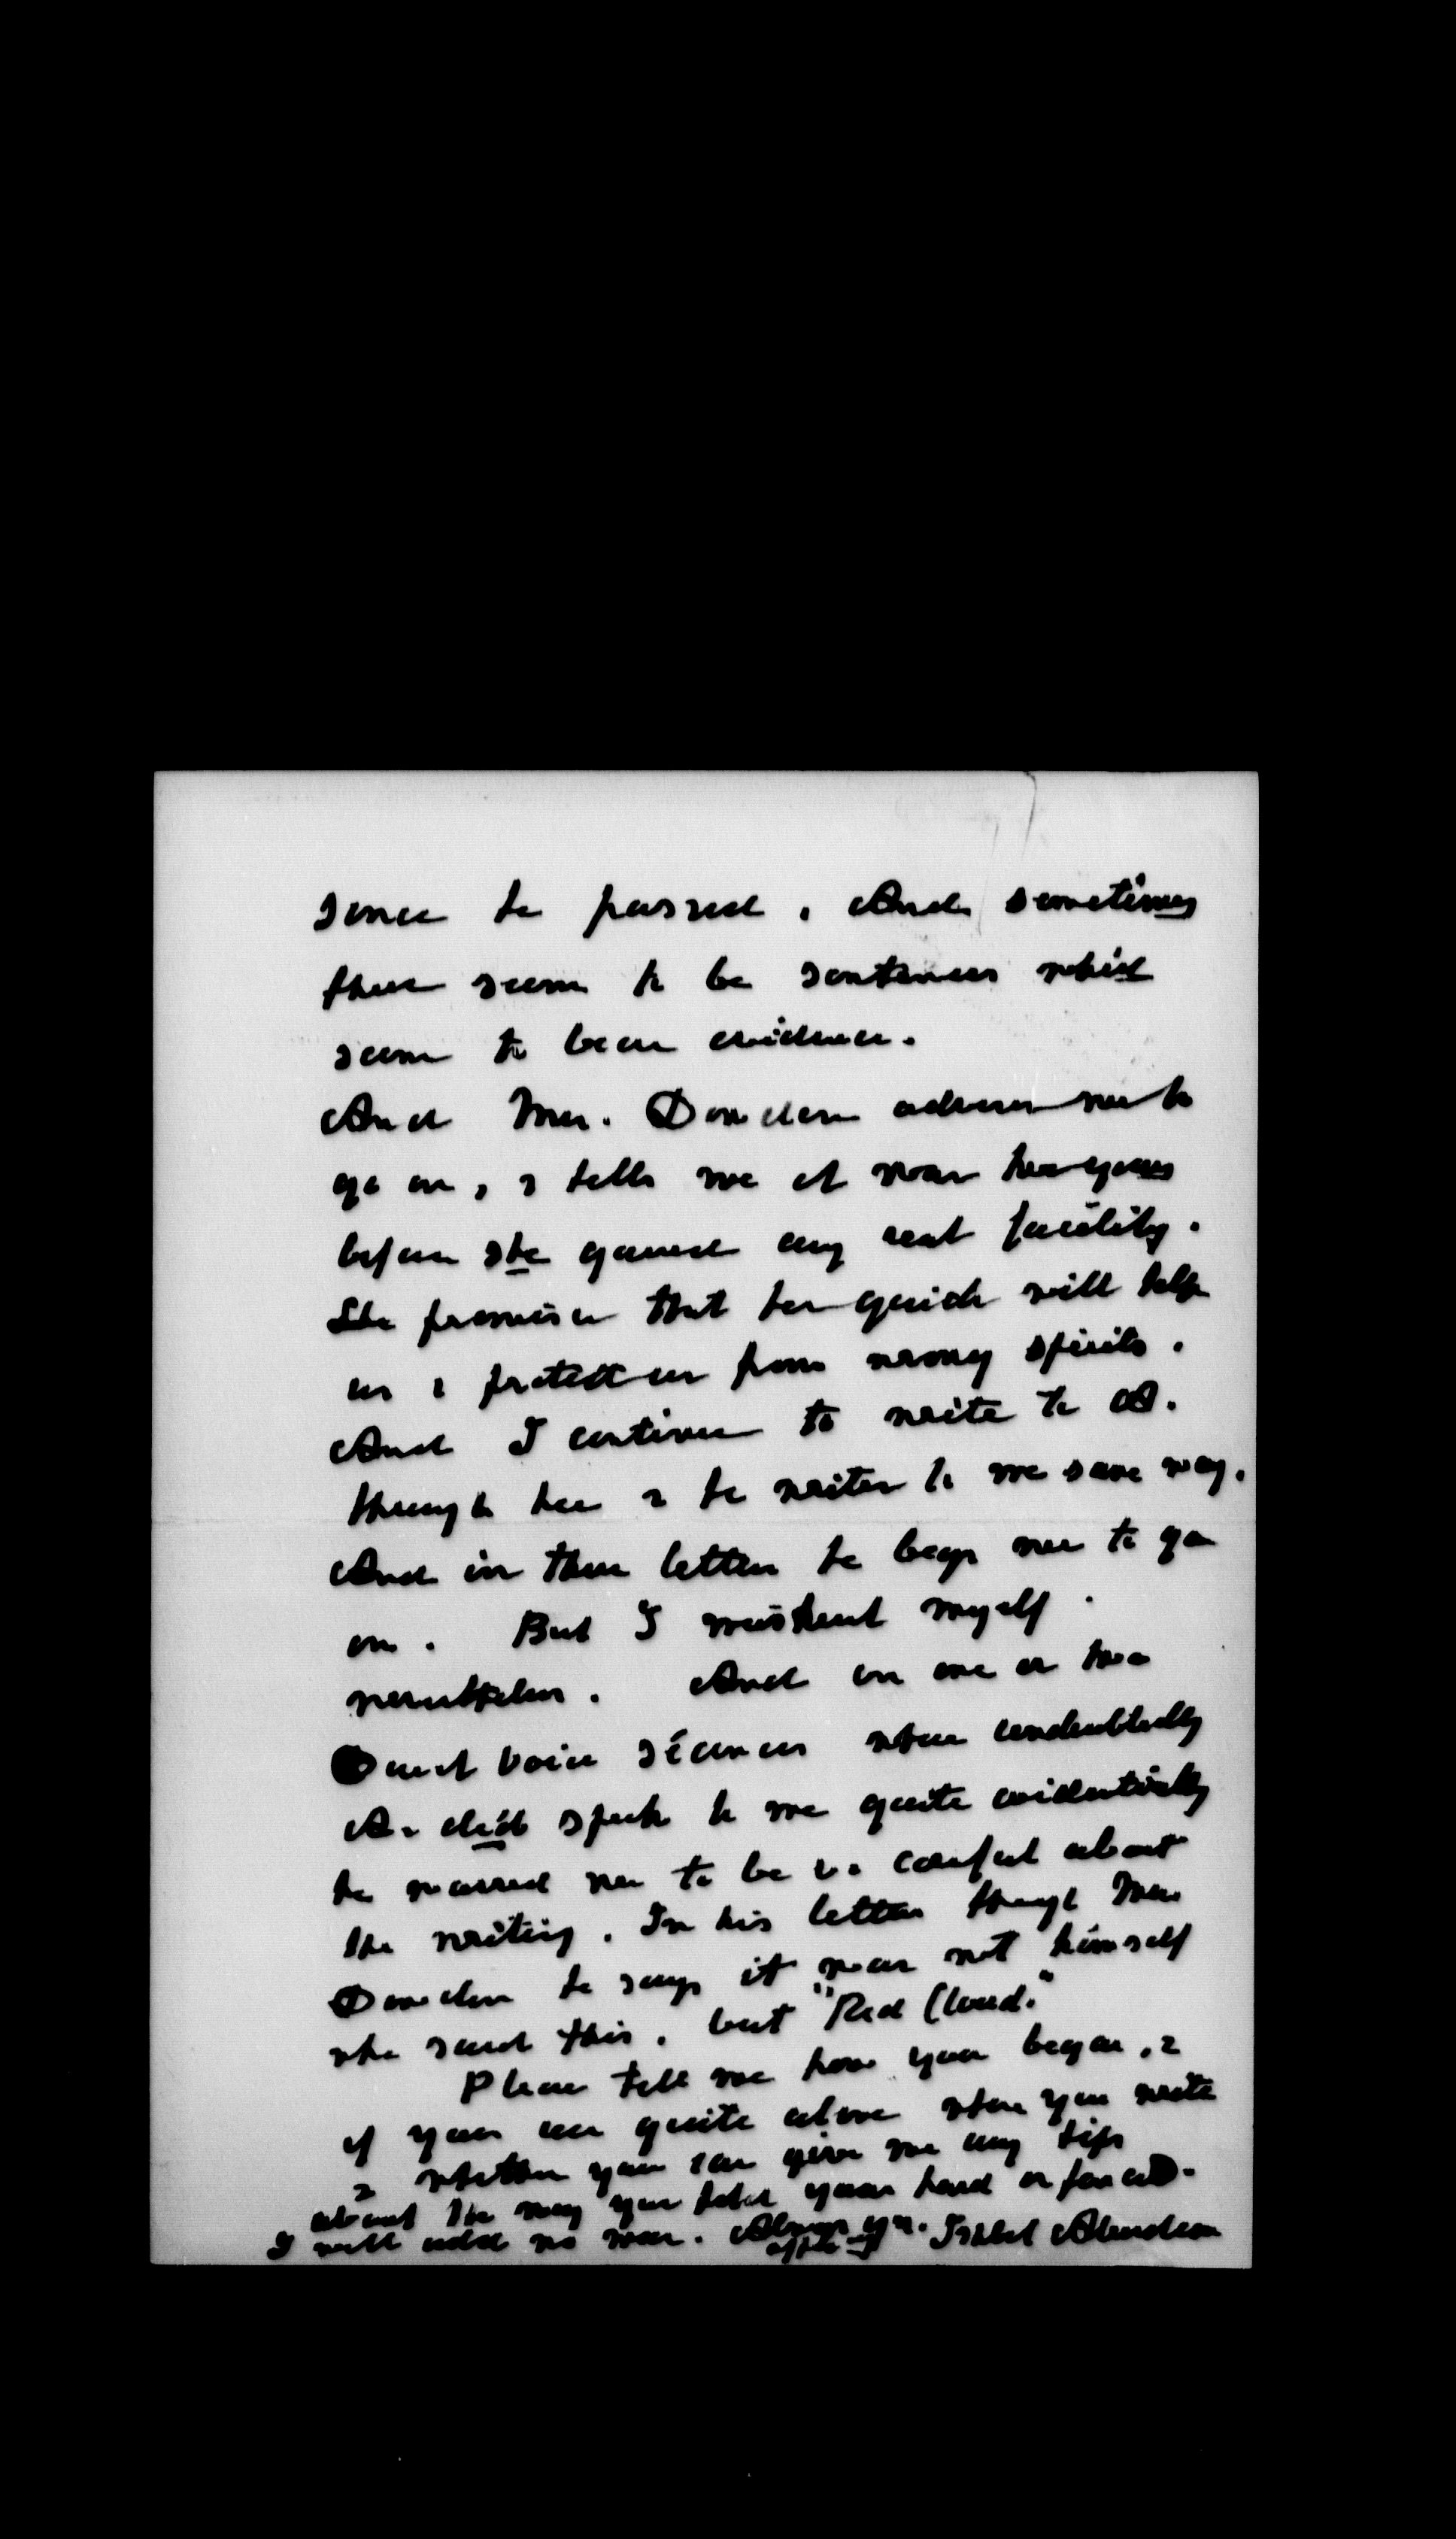 since he passed. And sometimes
there seem to be sentences which
seem to bear evidence.
And Mrs. Dowden advises me to
go on, & tells me it was two years
before she gained any real facility.
She promises that her guide will help
us & protect us from wrong spirits.
And I continue to write to A.
through her & he writes to me same way.
And in these letters he begs me to go
on. But I mistrust myself
nevertheless. And in one or two
Direct Voice séances when undoubtedly
A. did speak to me quite evidentially
he warned me to be v. careful about
the writing. In his letter through Mrs
Dowden he says it was not himself
who said this, but "Red Cloud."
Please tell me how you began, &
if you are quite alone when you write
& whether you can give me any tips
about the way you hold your hand or forearm.
I will add no more. Always yr. Ishbel Aberdeen
affte